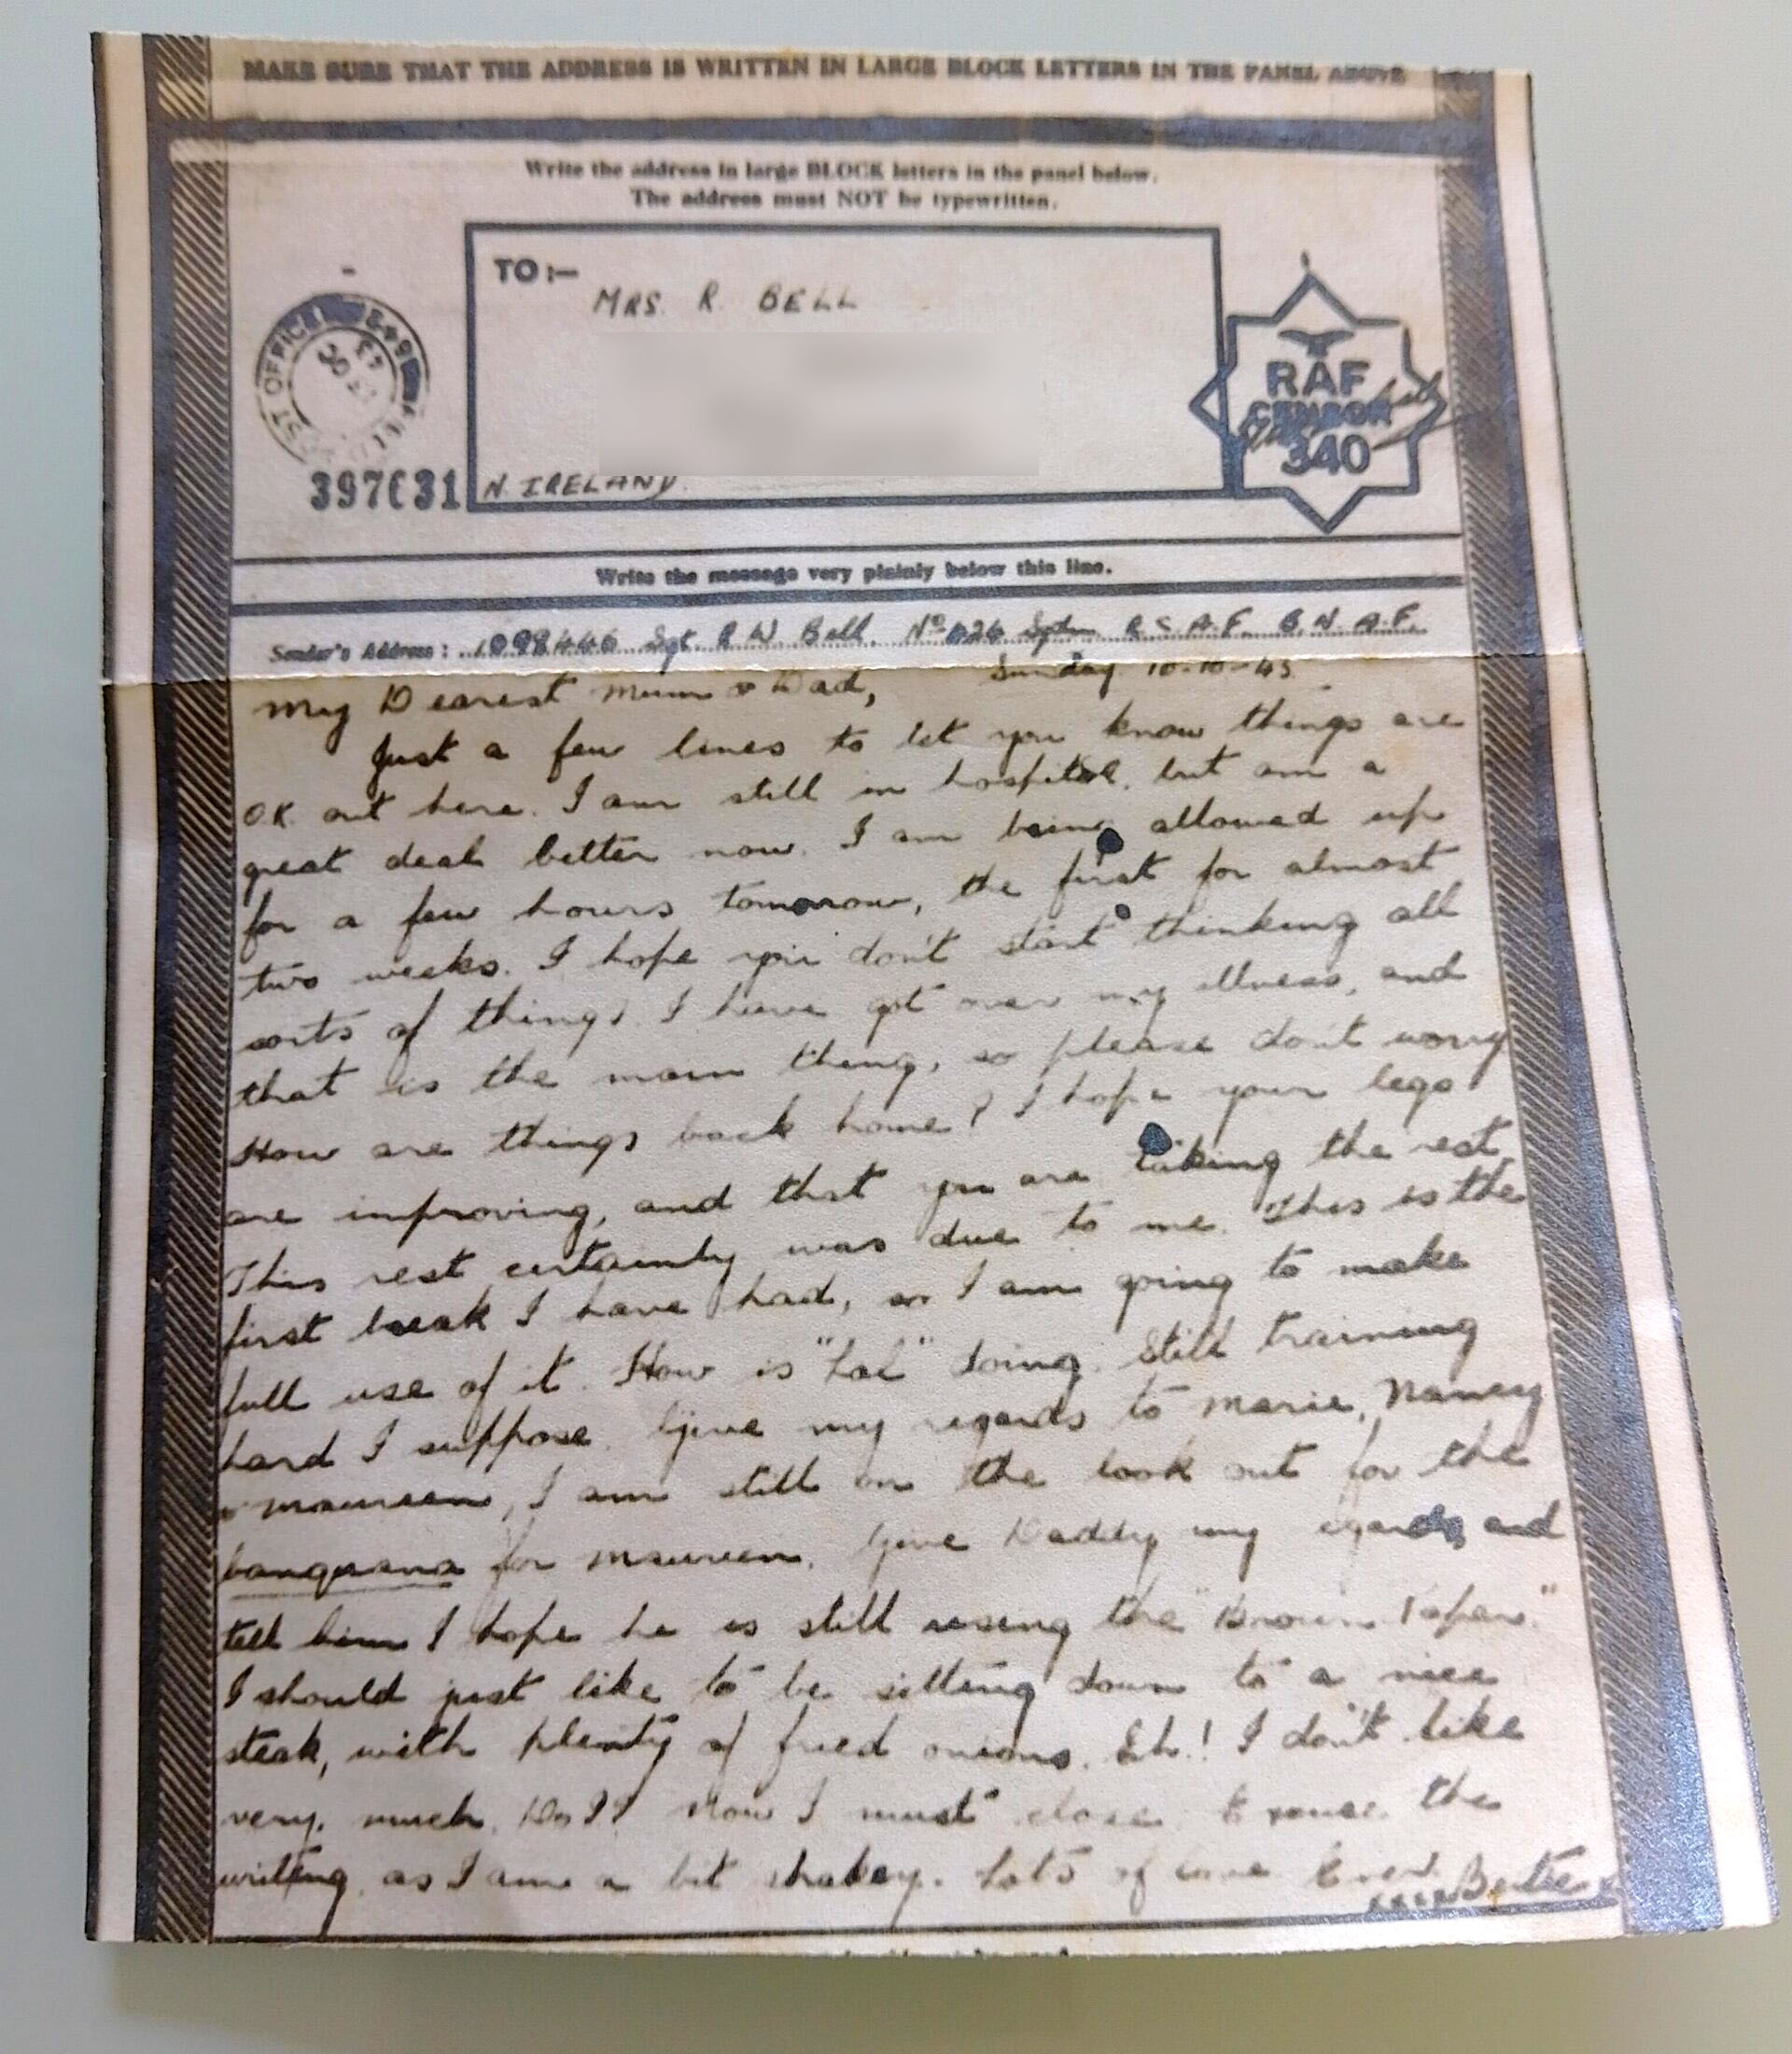 MAKE SURE THAT THE ADDRESS IS WRITTEN IN LARGE BLOCK LETTERS IN THE PANEL ABOVE
Write the address in large BLOCK letters in the panel below.
The address must NOT be typewritten.
TO:—
MRS. R. BELL
N. IRELAND.
POST OFFICE
43
397631
RAF
CENSOR
340
Write the message very plainly below this line.
Sender's Address: 1098446 Sgt. R W Bell. No 626 R.S.A.F. B.N.A.F.
Sunday 10-10-43
My Dearest Mum & Dad,
Just a few lines to let you know things are
OK out here. I am still in hospital, but am a
great deal better now. I am being allowed up
for a few hours tomorrow, the first for almost
two weeks. I hope you don't start thinking all
sorts of things. I have got over my illness, and
that is the main thing, so please don't worry
How are things back home? I hope your legs
are improving, and that you are taking the rest.
This rest certainly was due to me. This is the
first break I have had, so I am going to make
full use of it. How is "Hal" doing. Still training
hard I suppose. Give my regards to Marie, Nancy
& Maureen, I am still on the look out for the
for Maureen. Give Daddy my regards, and
tell him I hope he is still using the "Brown Paper."
I should just like to be sitting down to a nice
steak, with plenty of fried onions. Eh.! I don't like
very. much. Do I? Now I must close. Excuse the
writing, as I am a bit shakey. Lots of love Ever
Bertie